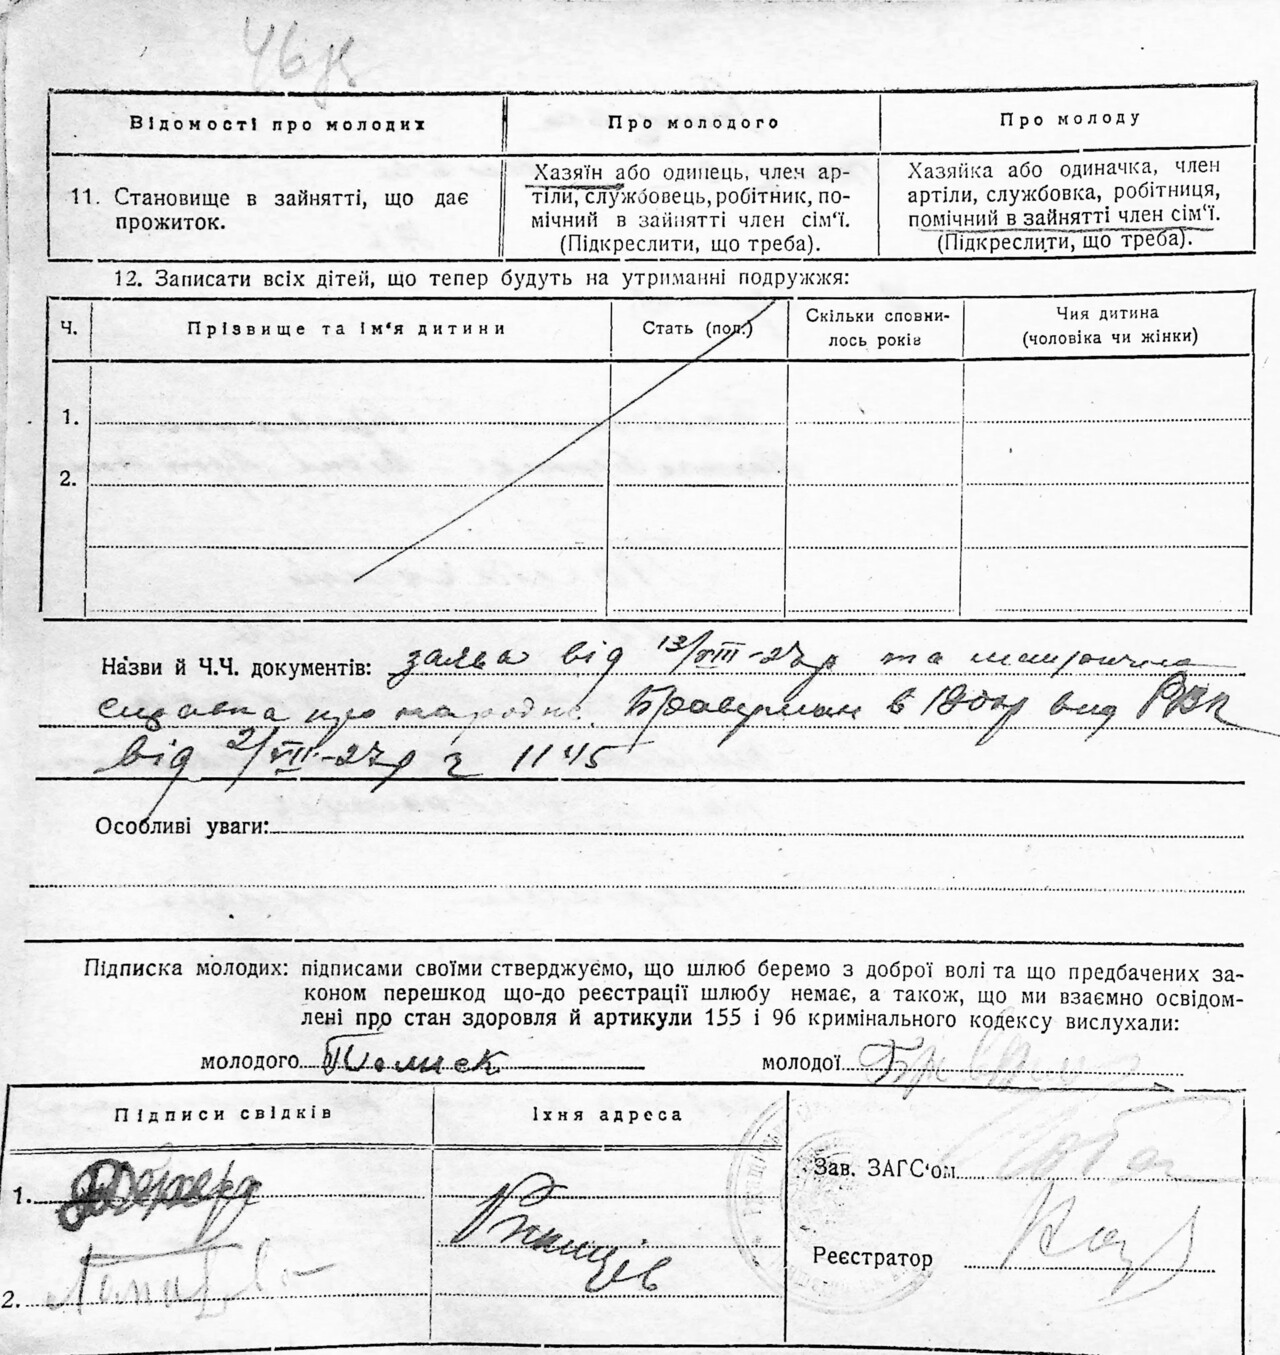 Відомості про молодих
Про молодого
Про молоду
11. Становище в зайнятті, що дає
прожиток.
Хазяїн або одинець, член ар-
тіли, службовець, робітник, по-
мічний в зайнятті член сім'ї.
(Підкреслити, що треба).
Хазяйка або одиначка, член
артіли, службовка, робітниця,
помічний в зайнятті член сім'ї.
(Підкреслити, що треба).
12. Записати всіх дітей, що тепер будуть на утриманні подружжя:
Ч.
Прізвище та ім'я дитини
Стать (пол.)
Скільки сповни-
лось років
Чия дитина
(чоловіка чи жінки)
1.
2.
Назви й Ч.Ч. документів: заява від 13/VIII-27р та
справка про Браверман в вид РВК
від 2/VIII-27р ч 1145
Особливі уваги:
Підписка молодих: підписами своїми стверджуємо, що шлюб беремо з доброї волі та що предбачених за-
коном перешкод що-до реєстрації шлюбу немає, а також, що ми взаємно освідом-
лені про стан здоровля й артикули 155 і 96 кримінального кодексу вислухали:
молодого
молодої
Підписи свідків
Їхня адреса
1.
Ржищів
Зав. ЗАГС'ом
Реєстратор
2.